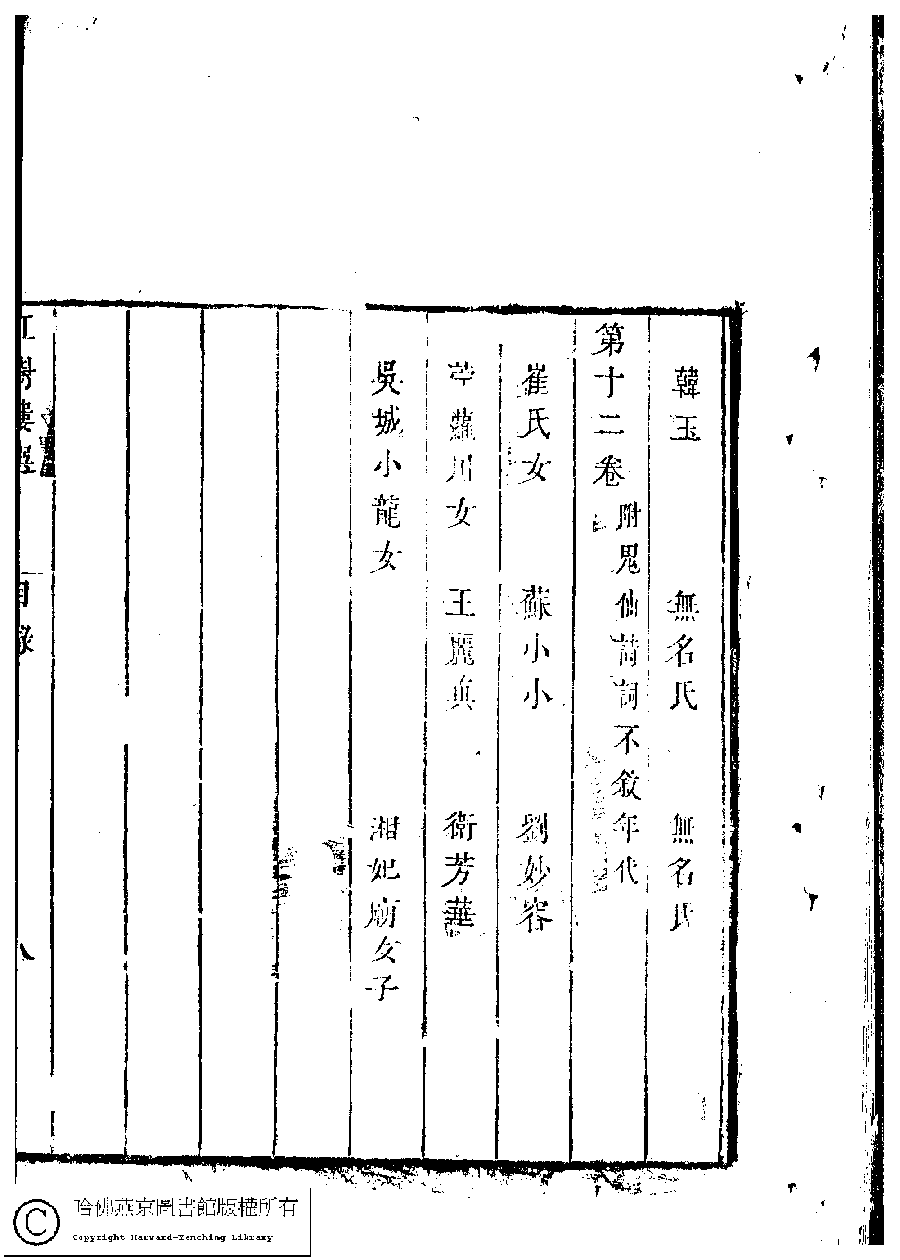 韓玉　無名氏　無名氏
第十二卷 附鬼仙詩詞不敘年代
崔氏女　蘇小小　劉妙容
苧蘿川女　王麗真　衛芳華
吳城小龍女　湘妃廟女子
紅樹樓選　目錄　八
哈佛燕京圖書館版權所有
Copyright Harvard-Yenching Library